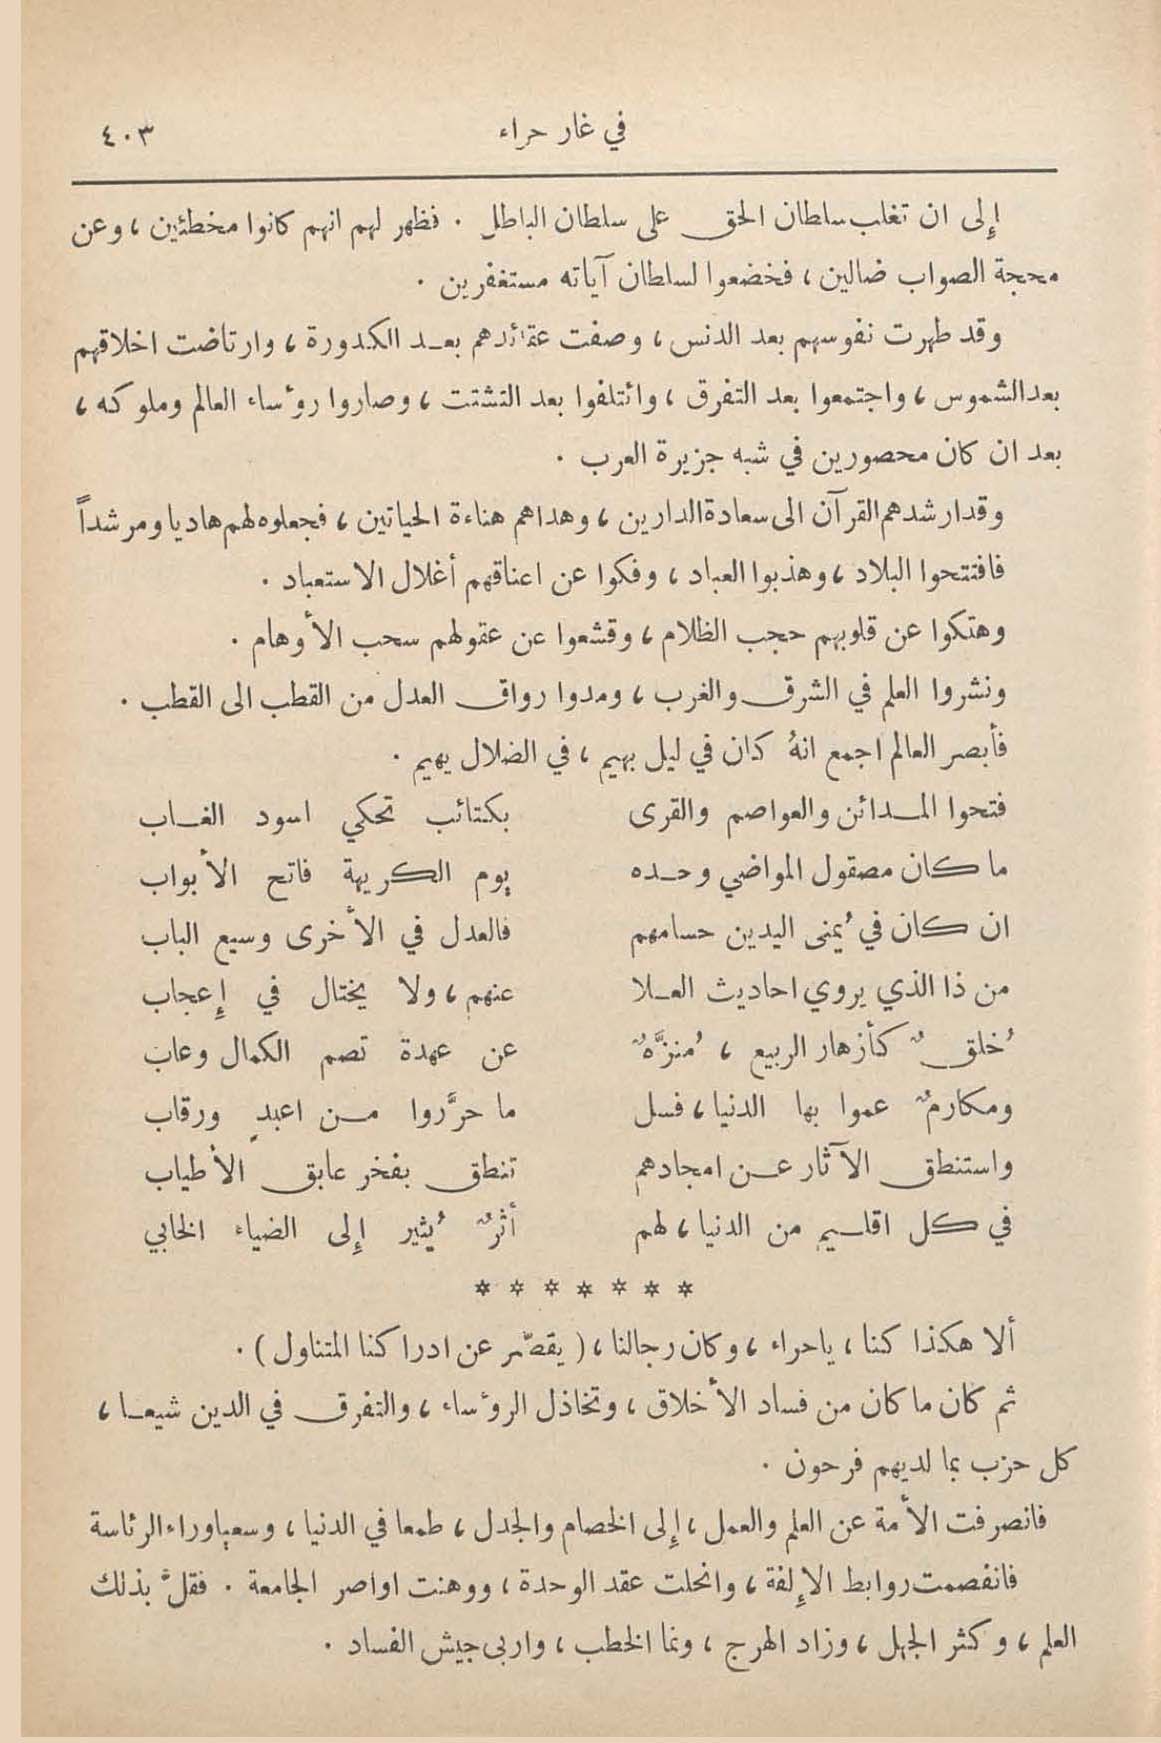 في غار حراء ٤٠٣
إِلى ان تغلب سلطان الحق على سلطان الباطل . فظهر لهم انهم كانوا مخطئين ، وعن
محجة الصواب ضالين ، فخضعوا لسلطان آياته مستغفرين .
وقد طهرت نفوسهم بعد الدنس ، وصفت عقائدهم بعد الكدورة ، وارتاضت اخلاقهم
بعد الشموس ، واجتمعوا بعد التفرق ، وائتلفوا بعد التشتت ، وصاروا روءساء العالم وملوكه ،
بعد ان كان محصورين في شبه جزيرة العرب .
وقد ارشدهم القرآن الى سعادة الدارين ، وهداهم هناءة الحياتين ، فجعلوه لهم هاديا ومرشداً
فافتتحوا البلاد ، وهذبوا العباد ، وفكوا عن اعناقهم أغلال الاستعباد .
وهتكوا عن قلوبهم حجب الظلام ، وقشعوا عن عقولهم سحب الأوهام .
ونشروا العلم في الشرق والغرب ، ومدوا رواق العدل من القطب الى القطب .
فأبصر العالم اجمع انهُ كان في ليل بهيم ، في الضلال يهيم .
فتحوا المدائن والعواصم والقرى بكتائب تحكي اسود الغاب
ما كان مصقول المواضي وحده يوم الكريهة فاتح الأبواب
ان كان في يُمنى اليدين حسامهم فالعدل في الأخرى وسيع الباب
من ذا الذي يروي احاديث العلا عنهم ، ولا يختال في إِعجاب
خُلقٌ كأزهار الربيع ، مُنزَّهٌ عن عهدة تصم الكمال وعاب
ومكارمٌ عموا بها الدنيا ، فسل ما حرَّروا من اعبدٍ ورقاب
واستنطق الآثار عن امجادهم تنطق بفخر عابق الأطياب
في كل اقليم من الدنيا ، لهم أثرٌ يُثير إِلى الضياء الخابي
* * * * * * *
ألا هكذا كنا ، يا حراء ، وكان رجالنا ، ( يقصّر عن ادراكنا المتناول ) .
ثم كان ما كان من فساد الأخلاق ، وتخاذل الروءساء ، والتفرق في الدين شيعا ،
كل حزب بما لديهم فرحون .
فانصرفت الأمة عن العلم والعمل ، إِلى الخصام والجدل ، طمعا في الدنيا ، وسعيا وراء الرئاسة
فانفصمت روابط الإِلفة ، وانحلت عقد الوحدة ، ووهنت اواصر الجامعة . فقلَّ بذلك
العلم ، وكثر الجهل ، وزاد الهرج ، ونما الخطب ، واربى جيش الفساد .